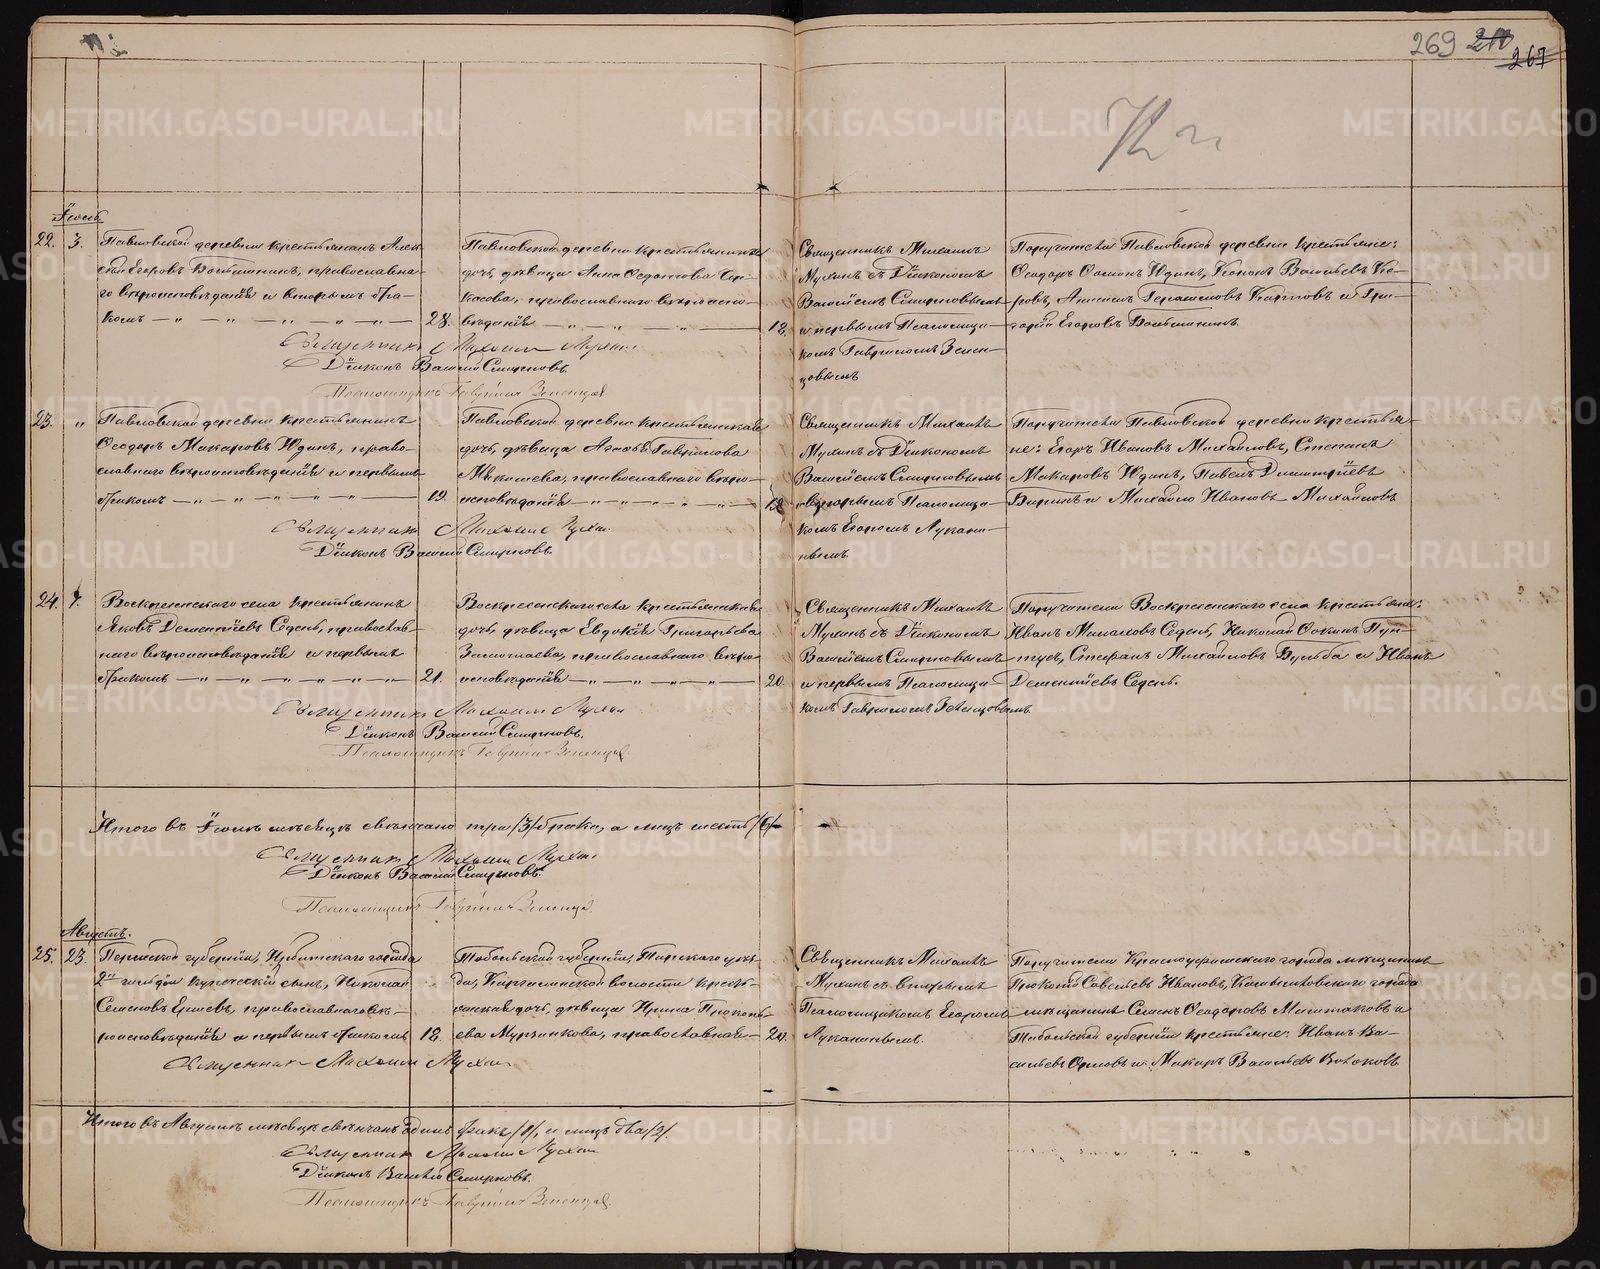 269
267
Іюль
22. 3. Павловской деревни крестьянинъ Алек-
сѣй Егоровъ православна-
го вѣроисповѣданія и вторымъ бра-
комъ — „ — „ — „ — „ — 28.
Павловской деревни крестьянская
дочь, дѣвица Анна
православнаго вѣроиспо-
вѣданія — „ — „ — 18.
Священникъ Михаилъ
Мухинъ съ Діакономъ
Василіемъ Смирновымъ
и первымъ Псаломщи-
комъ Гавріиломъ Зелен-
цовымъ
Поручители Павловской деревни крестьяне:
Ѳеодоръ Юдинъ, Кононъ Васильевъ Ки-
ровъ, Герасимовъ Карповъ и Гри-
горій Егоровъ
Священникъ Михаилъ Мухинъ
Діаконъ Василій Смирновъ.
Псаломщикъ Гавріилъ Зеленцовъ
23. „ Павловской деревни крестьянинъ
Ѳеодоръ Макаровъ Юдинъ, право-
славнаго вѣроисповѣданія и первымъ
бракомъ — „ — „ — „ — „ — 19.
Павловской деревни крестьянская
дочь, дѣвица Гаврилова
православнаго вѣро-
исповѣданія — „ — „ — „ — 18.
Священникъ Михаилъ
Мухинъ съ Діакономъ
Василіемъ Смирновымъ
и вторымъ Псаломщи-
комъ Егоромъ Лукани-
нымъ.
Поручители Павловской деревни крестья-
не: Егоръ Ивановъ Михайловъ, Степанъ
Макаровъ Юдинъ, Павелъ Димитріевъ
и Михайло Ивановъ Михайловъ
Священникъ Михаилъ Мухинъ
Діаконъ Василій Смирновъ.
24. 7. Воскресенскаго села крестьянинъ
Яковъ Дементіевъ Седень, православ-
наго вѣроисповѣданія и первымъ
бракомъ — „ — „ — „ — „ — 21.
Воскресенскаго села крестьянская
дочь, дѣвица Евдокія Григорьева
православнаго вѣро-
исповѣданія — „ — „ — „ — 20.
Священникъ Михаилъ
Мухинъ съ Діакономъ
Василіемъ Смирновымъ
и первымъ Псаломщи-
комъ Гавріиломъ Зеленцовымъ.
Поручители Воскресенскаго села крестьяне:
Иванъ Седень, Николай
Стефанъ Михайловъ Бульба и Иванъ
Дементіевъ Седень.
Священникъ Михаилъ Мухинъ
Діаконъ Василій Смирновъ.
Псаломщикъ Гавріилъ Зеленцовъ
Итого въ Іюлѣ мѣсяцѣ свѣнчано три /3/ брака, а лицъ шесть /6/
Священникъ Михаилъ Мухинъ
Діаконъ Василій Смирновъ.
Псаломщикъ Гавріилъ Зеленцовъ
Августъ.
25. 23. Пермской губерніи, Ирбитскаго города
2й гильдіи купеческій сынъ, Николай
Семеновъ православнаго вѣ-
роисповѣданія и первымъ бракомъ 18.
Тобольской губерніи, Тарскаго уѣз-
да, волости крестья-
нская дочь, дѣвица Ирина Прокопь-
ева православная — 20.
Священникъ Михаилъ
Мухинъ съ вторымъ
Псаломщикомъ Егоромъ
Луканинымъ.
Поручители Красноуфимскаго города мѣщанинъ
Прокопій Савельевъ Ивановъ, Камышловскаго города
мѣщанинъ Семенъ Ѳеодоровъ и
Тобольской губерніи крестьяне: Иванъ Ва-
сильевъ Орловъ и Макаръ Васильевъ
Священникъ Михаилъ Мухинъ
Итого въ Августѣ мѣсяцѣ свѣнчанъ одинъ бракъ /1/, и лицъ два /2/.
Священникъ Михаилъ Мухинъ
Діаконъ Василій Смирновъ.
Псаломщикъ Гавріилъ Зеленцовъ
METRIKI.GASO-URAL.RU